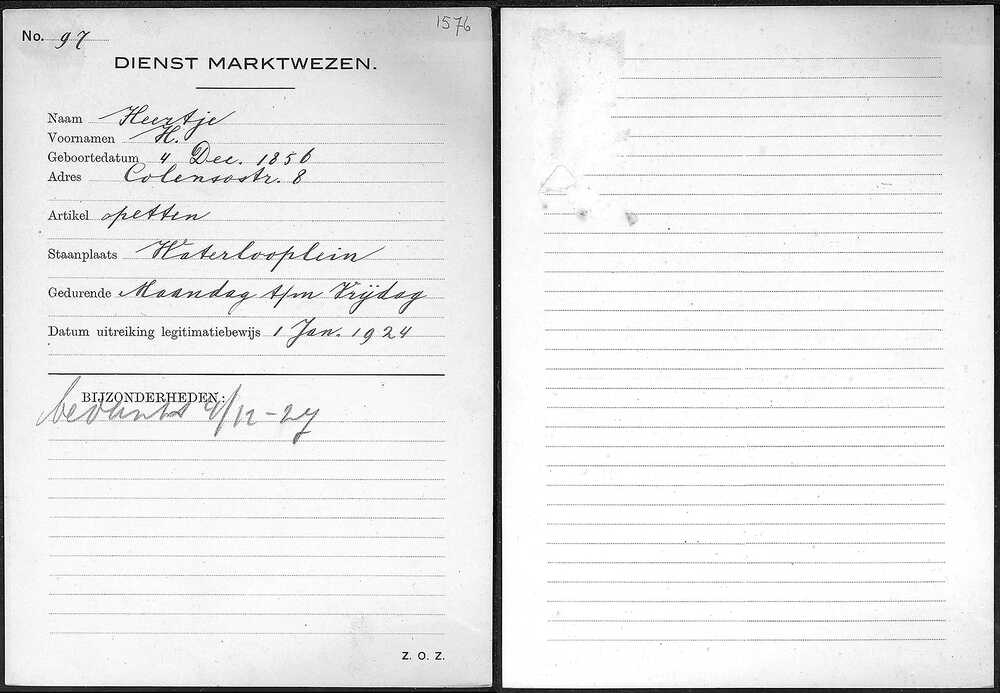 1576
No. 97
DIENST MARKTWEZEN.
Naam Heertje
Voornamen H.
Geboortedatum 4 Dec. 1856
Adres Colensostr. 8
Artikel petten
Staanplaats Waterlooplein
Gedurende Maandag t/m Vrijdag
Datum uitreiking legitimatiebewijs 1 Jan. 1924
BIJZONDERHEDEN:
/12-27
Z. O. Z.